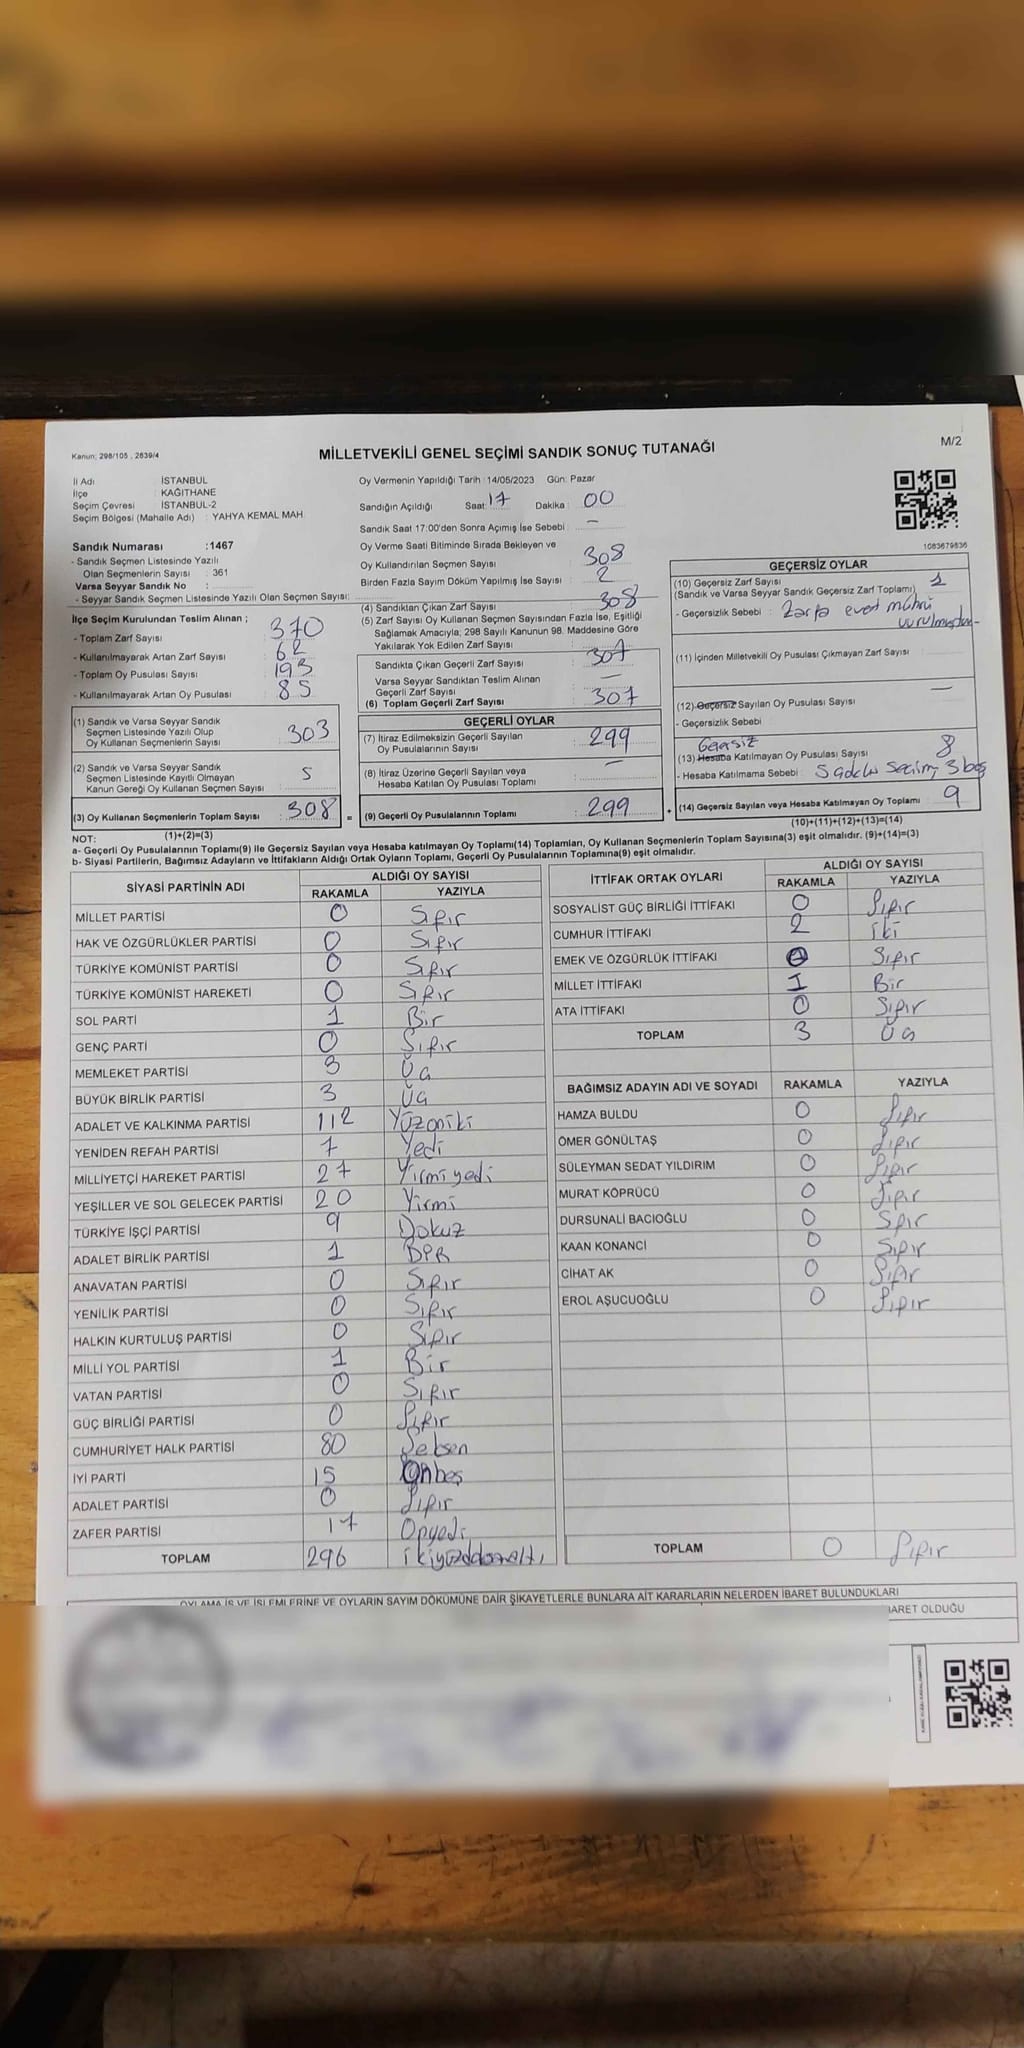 Kanun; 298/105 , 2839/4
MİLLETVEKİLİ GENEL SEÇİMİ SANDIK SONUÇ TUTANAĞI
M/2
İl Adı : İSTANBUL
İlçe : KAĞITHANE
Seçim Çevresi : İSTANBUL-2
Seçim Bölgesi (Mahalle Adı) : YAHYA KEMAL MAH.
Sandık Numarası :1467
- Sandık Seçmen Listesinde Yazılı
Olan Seçmenlerin Sayısı : 361
Varsa Seyyar Sandık No :
- Seyyar Sandık Seçmen Listesinde Yazılı Olan Seçmen Sayısı:
Oy Vermenin Yapıldığı Tarih :14/05/2023 Gün: Pazar
Sandığın Açıldığı Saat: 17 Dakika : 00
Sandık Saat 17:00'den Sonra Açımış İse Sebebi : —
Oy Verme Saati Bitiminde Sırada Bekleyen ve
Oy Kullandırılan Seçmen Sayısı : 308
Birden Fazla Sayım Döküm Yapılmış İse Sayısı : 2
1083679836
İlçe Seçim Kurulundan Teslim Alınan ;
- Toplam Zarf Sayısı : 370
- Kullanılmayarak Artan Zarf Sayısı : 62
- Toplam Oy Pusulası Sayısı : 193
- Kullanılmayarak Artan Oy Pusulası : 85
(1) Sandık ve Varsa Seyyar Sandık
Seçmen Listesinde Yazılı Olup
Oy Kullanan Seçmenlerin Sayısı : 303
(2) Sandık ve Varsa Seyyar Sandık
Seçmen Listesinde Kayıtlı Olmayan
Kanun Gereği Oy Kullanan Seçmen Sayısı : 5
(3) Oy Kullanan Seçmenlerin Toplam Sayısı : 308 =
(1)+(2)=(3)
(4) Sandıktan Çıkan Zarf Sayısı : 308
(5) Zarf Sayısı Oy Kullanan Seçmen Sayısından Fazla İse, Eşitliği
Sağlamak Amacıyla; 298 Sayılı Kanunun 98. Maddesine Göre
Yakılarak Yok Edilen Zarf Sayısı :
Sandıkta Çıkan Geçerli Zarf Sayısı : 307
Varsa Seyyar Sandıktan Teslim Alınan
Geçerli Zarf Sayısı : —
(6) Toplam Geçerli Zarf Sayısı : 307
GEÇERLİ OYLAR
(7) İtiraz Edilmeksizin Geçerli Sayılan
Oy Pusulalarının Sayısı : 299
(8) İtiraz Üzerine Geçerli Sayılan veya
Hesaba Katılan Oy Pusulası Toplamı : —
(9) Geçerli Oy Pusulalarının Toplamı : 299 +
GEÇERSİZ OYLAR
(10) Geçersiz Zarf Sayısı : 1
(Sandık ve Varsa Seyyar Sandık Geçersiz Zarf Toplamı)
- Geçersizlik Sebebi : Zarfa evet mührü
vurulmuştur
(11) İçinden Milletvekili Oy Pusulası Çıkmayan Zarf Sayısı :
(12) Geçersiz Sayılan Oy Pusulası Sayısı : —
- Geçersizlik Sebebi
Geçersiz
(13) Hesaba Katılmayan Oy Pusulası Sayısı 8
- Hesaba Katılmama Sebebi : 3 boş
(14) Geçersiz Sayılan veya Hesaba Katılmayan Oy Toplamı : 9
(10)+(11)+(12)+(13)=(14)
NOT:
a- Geçerli Oy Pusulaları Toplamı(9) ile Geçersiz Sayılan veya Hesaba Katılmayan Oy Toplamı(14) Toplamları, Oy Kullanan Seçmenlerin Toplam Sayısına(3) eşit olmalıdır. (9)+(14)=(3)
b- Siyasi Partilerin, Bağımsız Adayların ve İttifakların Aldığı Ortak Oyların Toplamı, Geçerli Oy Pusulalarının Toplamına(9) eşit olmalıdır.
SİYASİ PARTİNİN ADI ALDIĞI OY SAYISI
RAKAMLA YAZIYLA
MİLLET PARTİSİ 0 Sıfır
HAK VE ÖZGÜRLÜKLER PARTİSİ 0 Sıfır
TÜRKİYE KOMÜNİST PARTİSİ 0 Sıfır
TÜRKİYE KOMÜNİST HAREKETİ 0 Sıfır
SOL PARTİ 1 Bir
GENÇ PARTİ 0 Sıfır
MEMLEKET PARTİSİ 3 Üç
BÜYÜK BİRLİK PARTİSİ 3 Üç
ADALET VE KALKINMA PARTİSİ 112 Yüzoniki
YENİDEN REFAH PARTİSİ 7 Yedi
MİLLİYETÇİ HAREKET PARTİSİ 27 Yirmiyedi
YEŞİLLER VE SOL GELECEK PARTİSİ 20 Yirmi
TÜRKİYE İŞÇİ PARTİSİ 9 Dokuz
ADALET BİRLİK PARTİSİ 1 BİR
ANAVATAN PARTİSİ 0 Sıfır
YENİLİK PARTİSİ 0 Sıfır
HALKIN KURTULUŞ PARTİSİ 0 Sıfır
MİLLİ YOL PARTİSİ 1 Bir
VATAN PARTİSİ 0 Sıfır
GÜÇ BİRLİĞİ PARTİSİ 0 Sıfır
CUMHURİYET HALK PARTİSİ 80 Seksen
İYİ PARTİ 15 Onbeş
ADALET PARTİSİ 0 Sıfır
ZAFER PARTİSİ 17 Onyedi
TOPLAM 296 ikiyüzdoksanaltı
İTTİFAK ORTAK OYLARI ALDIĞI OY SAYISI
RAKAMLA YAZIYLA
SOSYALİST GÜÇ BİRLİĞİ İTTİFAKI 0 Sıfır
CUMHUR İTTİFAKI 2 iki
EMEK VE ÖZGÜRLÜK İTTİFAKI 0 Sıfır
MİLLET İTTİFAKI 1 Bir
ATA İTTİFAKI 0 Sıfır
TOPLAM 3 Üç
BAĞIMSIZ ADAYIN ADI VE SOYADI RAKAMLA YAZIYLA
HAMZA BULDU 0 Sıfır
ÖMER GÖNÜLTAŞ 0 Sıfır
SÜLEYMAN SEDAT YILDIRIM 0 Sıfır
MURAT KÖPRÜCÜ 0 Sıfır
DURSUNALİ BACIOĞLU 0 Sıfır
KAAN KONANCİ 0 Sıfır
CİHAT AK 0 Sıfır
EROL AŞUCUOĞLU 0 Sıfır
TOPLAM 0 Sıfır
OYLAMA İŞ VE İŞLEMLERİNE VE OYLARIN SAYIM DÖKÜMÜNE DAİR ŞİKAYETLERLE BUNLARA AİT KARARLARIN NELERDEN İBARET BULUNDUKLARI
İBARET OLDUĞU